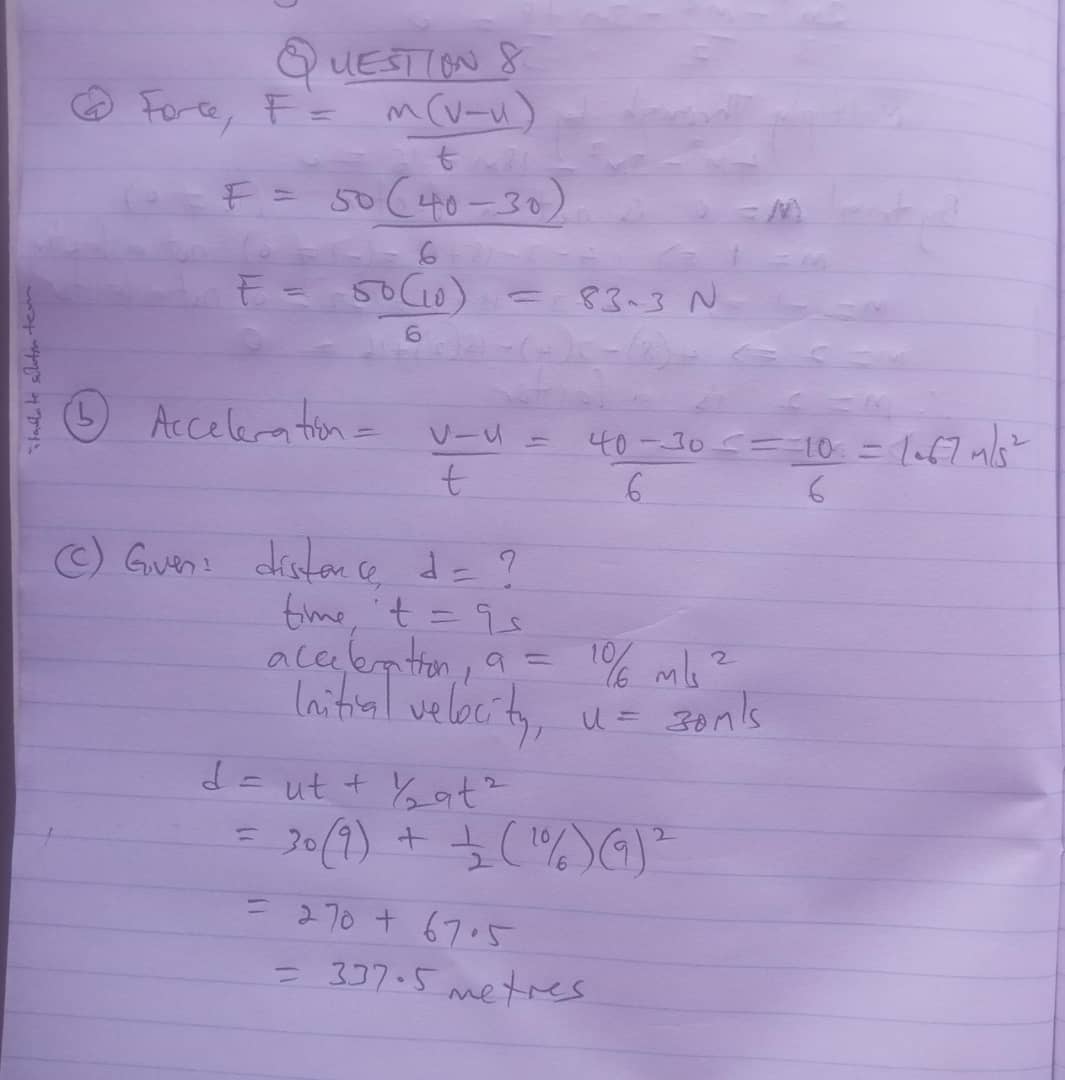 QUESTION 8
(a) Force, F = m(v-u)/t
F = 50(40-30)/6
F = 50(10)/6 = 83.3 N
(b) Acceleration = v-u/t = 40-30/6 = 10/6 = 1.67 m/s²
(c) Given: distance, d = ?
time, t = 9s
acceleration, a = 10/6 m/s²
Initial velocity, u = 30m/s
d = ut + 1/2at²
= 30(9) + 1/2(10/6)(9)²
= 270 + 67.5
= 337.5 metres